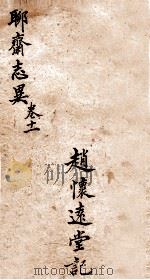 聊齋志異卷十二
趙懷遠堂記